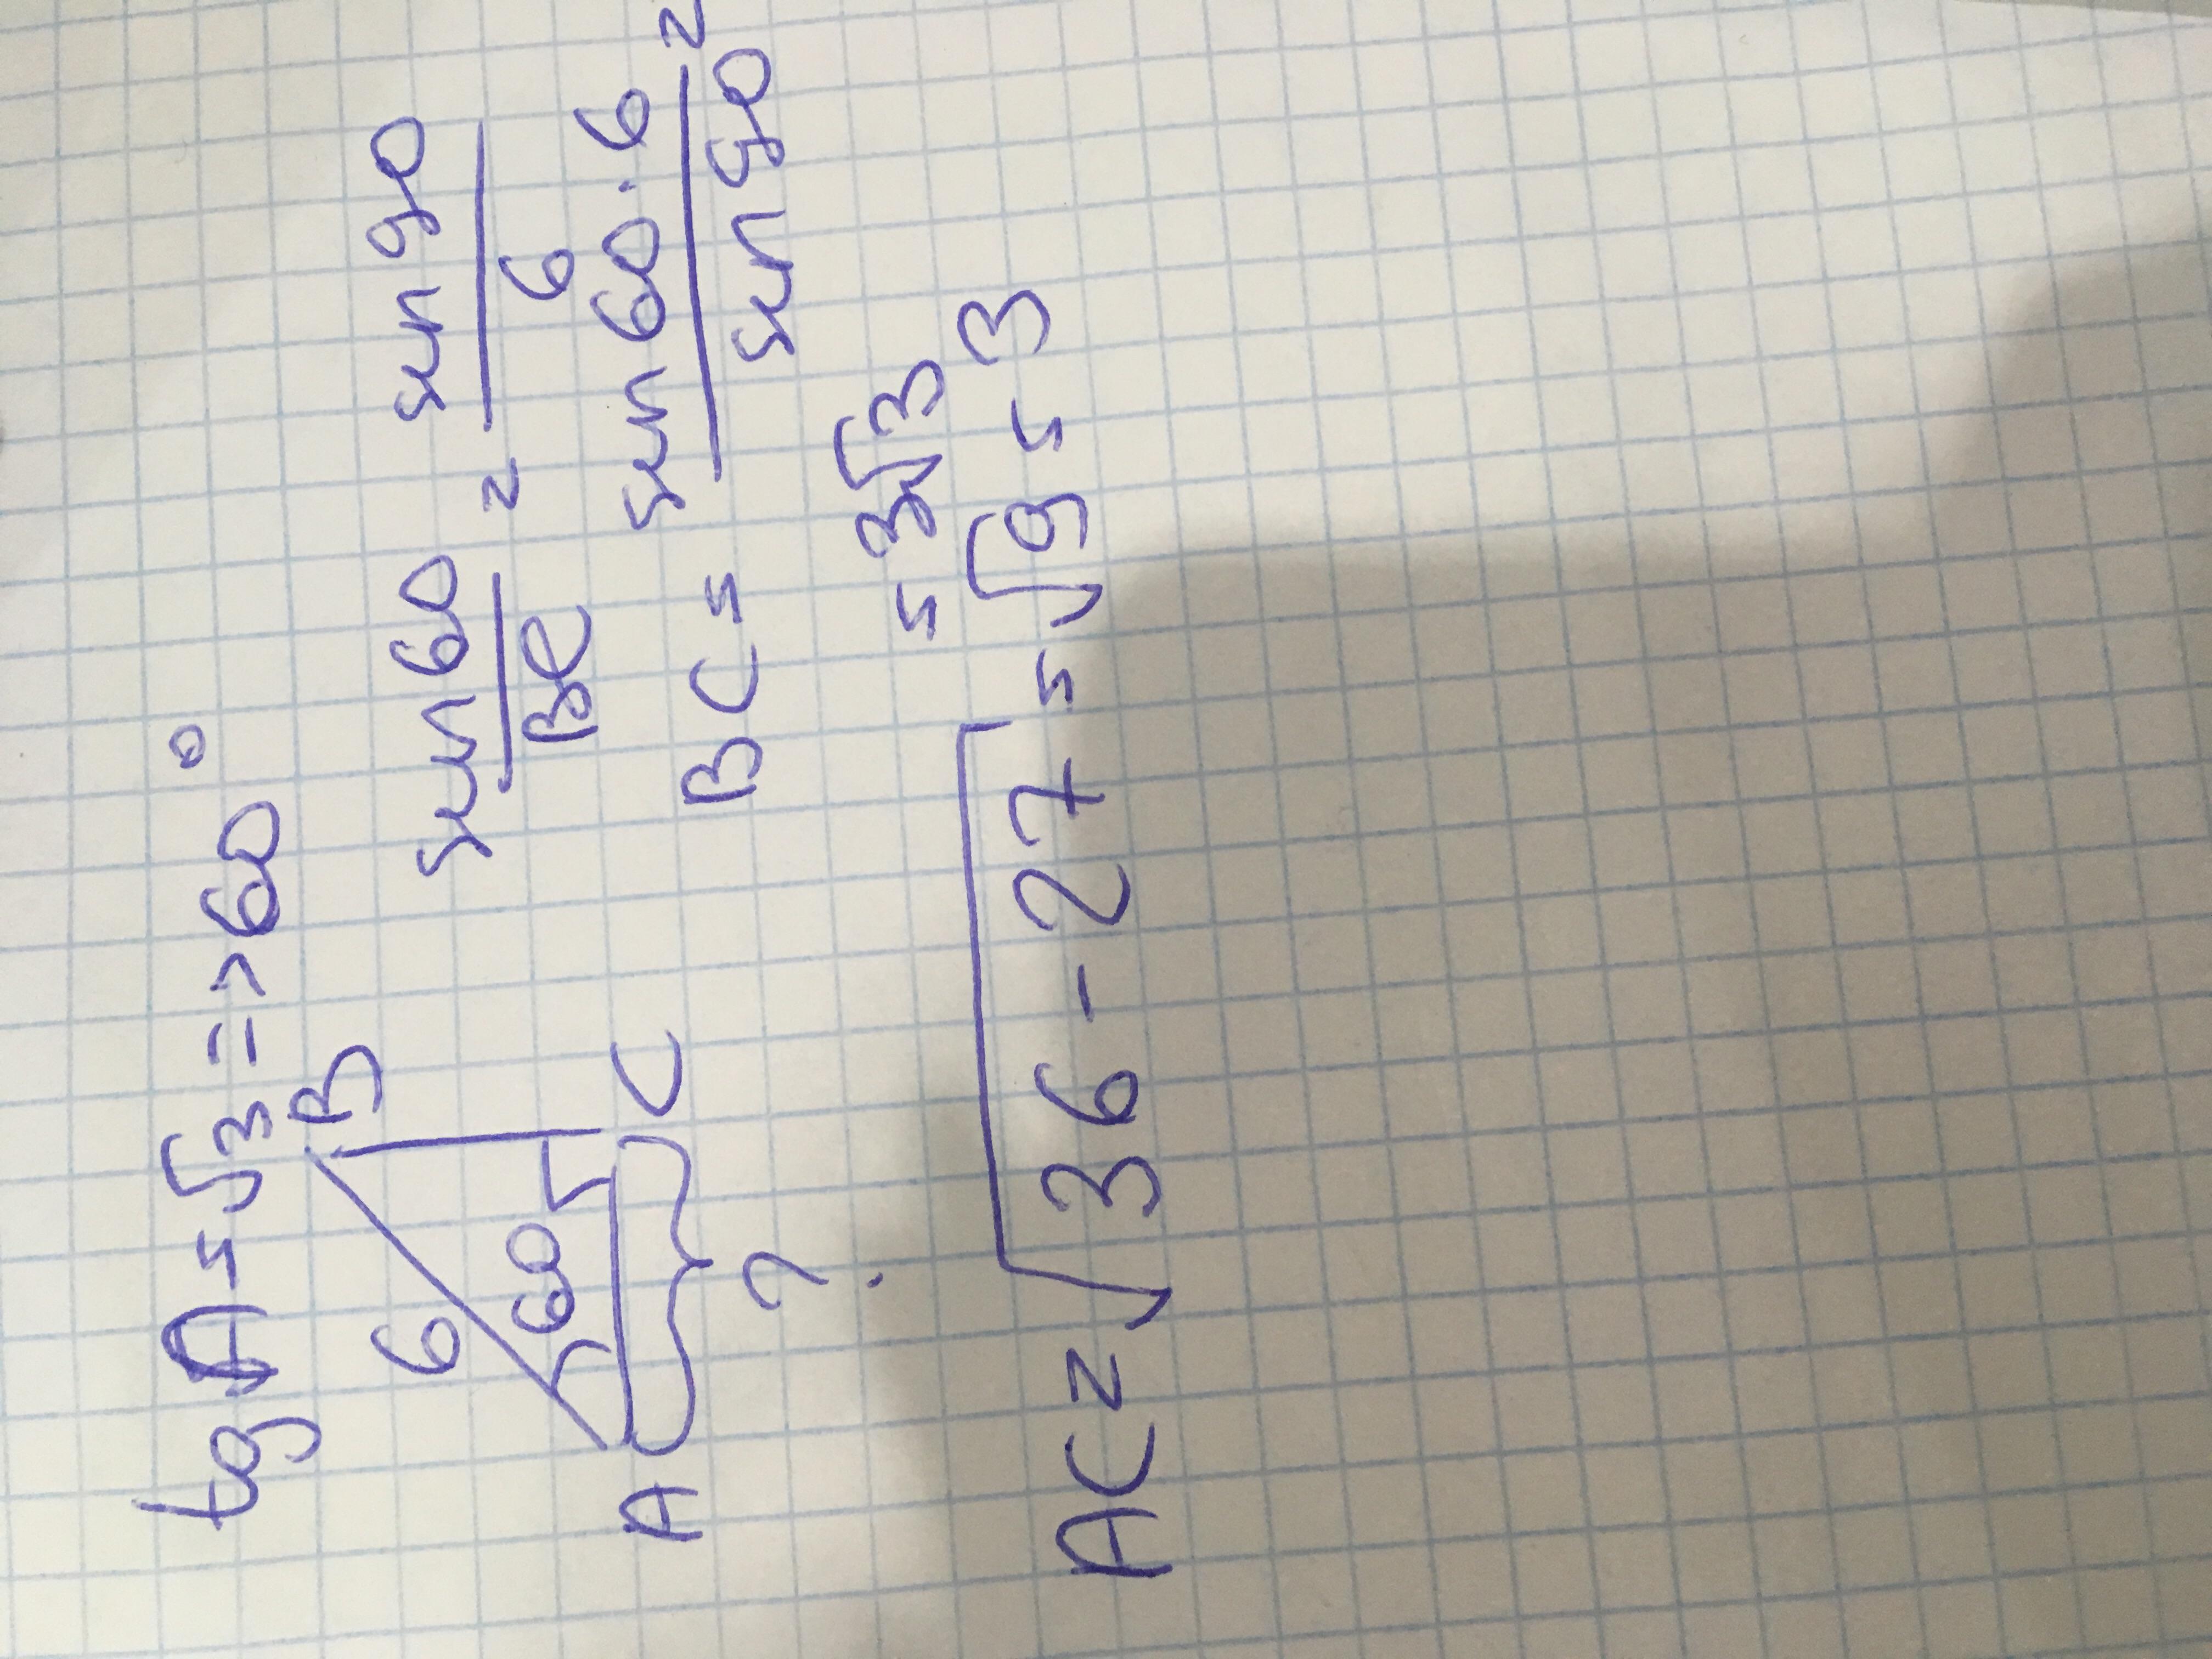 tg A = √3 => 60°
B
6
60
A
C
?
sin 60 / BC = sin 90 / 6
BC = sin 60 · 6 / sin 90 =
= 3√3
AC = √36 - 27 = √9 = 3